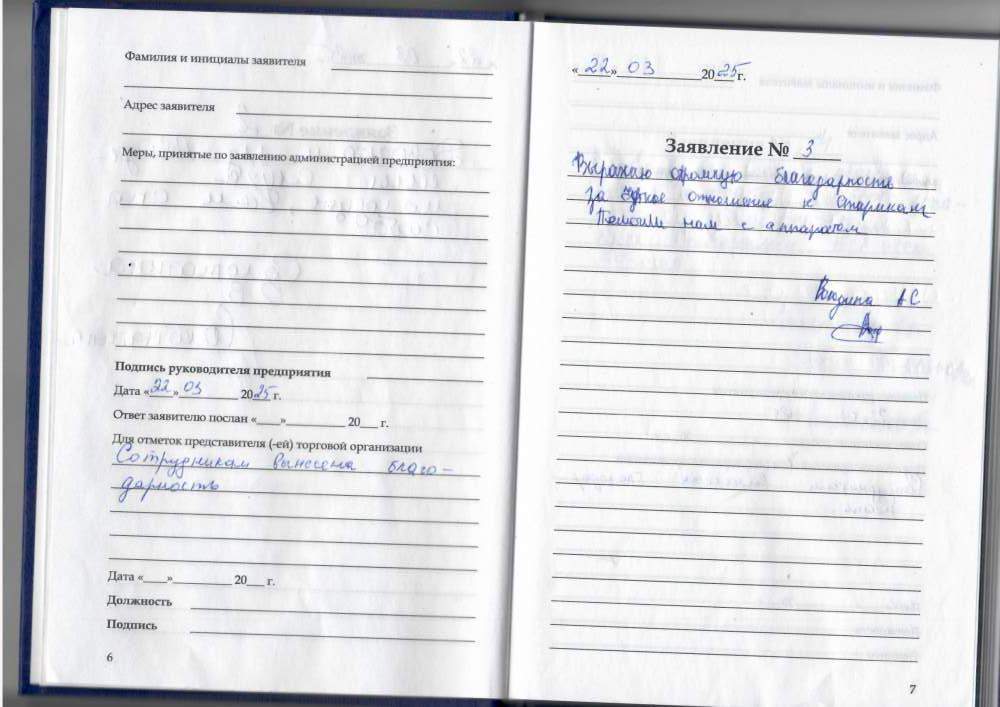 Фамилия и инициалы заявителя
Адрес заявителя
Меры, принятые по заявлению администрацией предприятия:
Подпись руководителя предприятия
Дата «22» 03 2025 г.
Ответ заявителю послан «___»__________ 20___ г.
Для отметок представителя (-ей) торговой организации
Сотрудникам вынесена благо-
дарность
Дата «___»__________ 20___ г.
Должность
Подпись
6
«22» 03 2025 г.
Заявление № 3
Выражаю огромную благодарность
за чуткое отношение к старикам
Помогли нам с аппаратом
АС
7